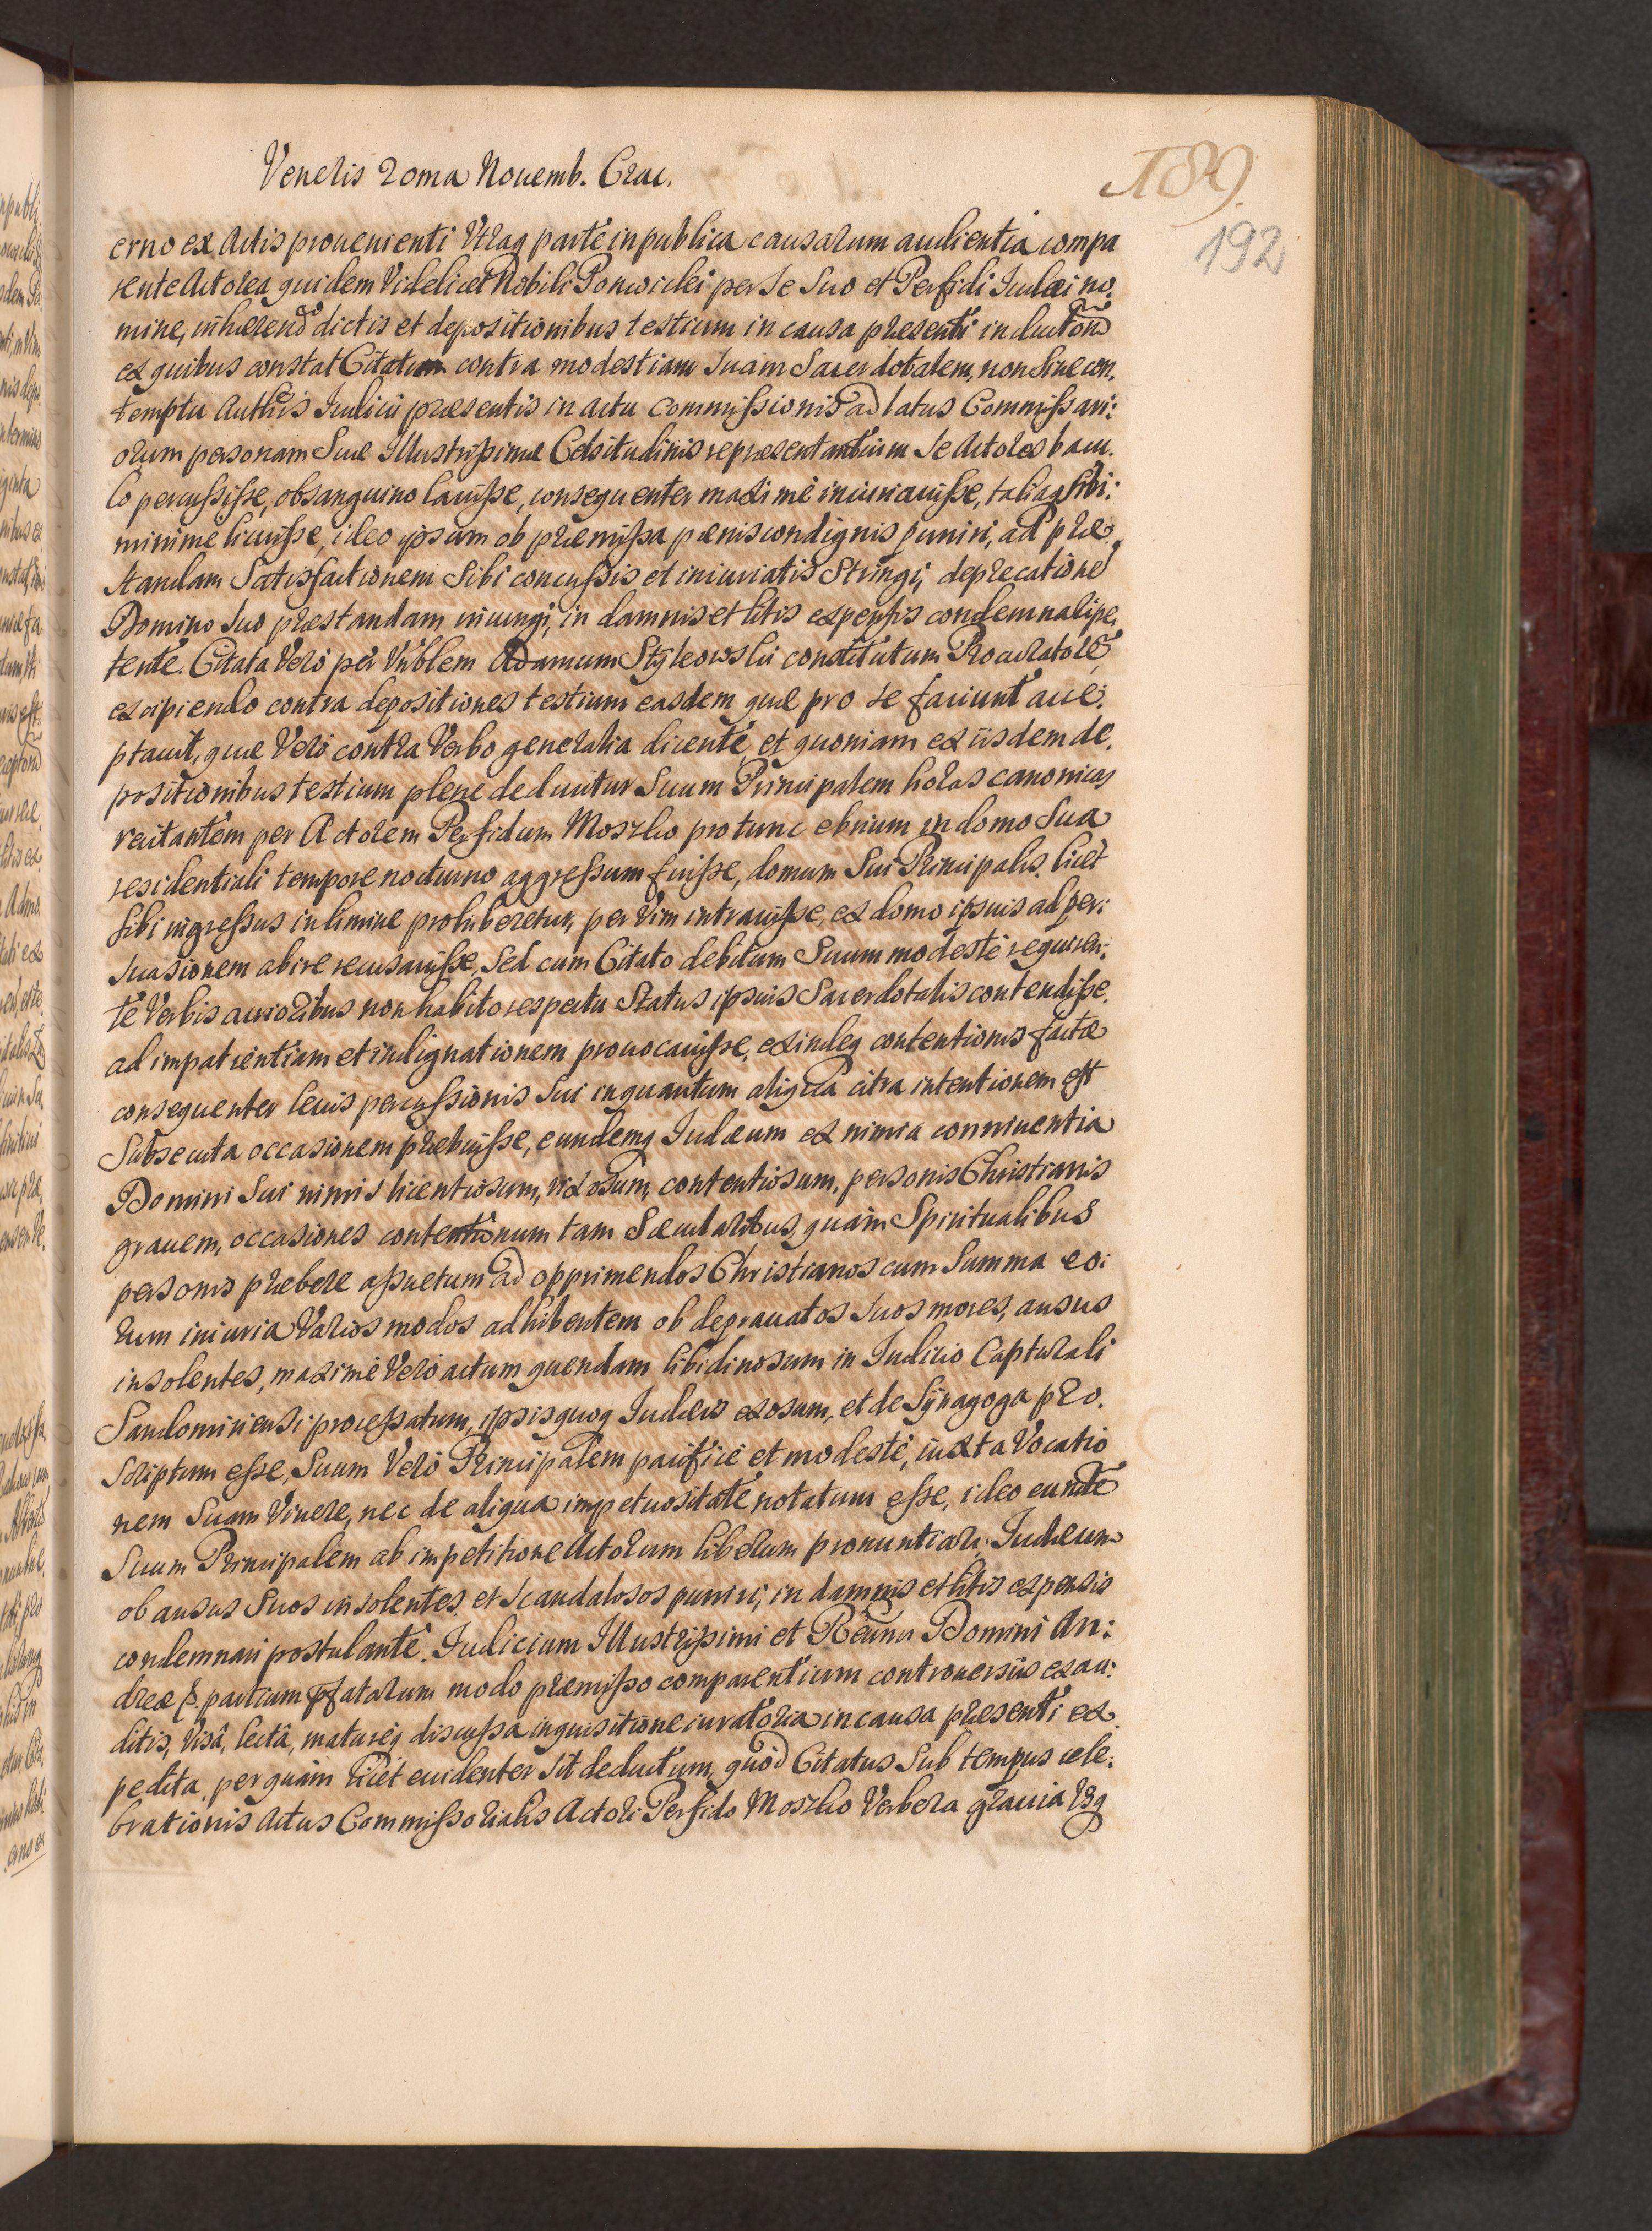 Veneris 20ma Nouemb. Crac.
189.
192
erno ex Actis prouenienti Vtraq parte in publica causarum audientia compa
rente Actorea quidem Videlicet Nobili Ponicidei per se suo et Perfidi Iudæi no.
mine, inhærendo dictis et depositionibus testium in causa præsenti inductor
ex quibus constat Citatum contra modestiam suam Sacerdotalem, non sine con.
temptu Authtis Iudicii præsentis in actu commissionis ad latus Commissari:
orum personam Suæ Illustrissimæ Celsitudinis repræsentantium se Actores bacu.
lo percussisse, obsanguino lauisse, consequenter maximè iniuriauisse, taliaq sibi:
minime licuisse, ideo ipsum ob præmissa pœnis condignis puniri, ad præ.
standam Satisfactionem Sibi concussis et iniuriatis Stringi, deprecatione
Domino Suo præstandam iniungi, in damnis et litis expensis condemnari pe.
tente. Citata Verò pèr Vnblem Adamum Styleowski constitutum Procuratore
excipiendo contra depositiones testium easdem quæ pro se faciunt acce:
ptauit, quæ Verò contra Verbo generalia dicente, et quoniam ex iisdem de.
positionibus testium plene deducitur Suum Principalem horas canonicas
recitantem per Actorem Perfidum Moszko pro tunc ebrium in domo Sua
residentiali tempore nocturno aggressum fuisse, domum Sui Principalis. licèt
sibi ingressus in limine prohiberetur, per Vim intrauisse, ex domo ipsius ad per:
suasionem abire recusauisse, Sed cum Citato debitum Suum modestè requiren:
te Verbis acrioribus non habito respectu Status ipsius Sacerdotalis contendisse.
ad impatientiam et indignationem prouocauisse, exindeq contentionis factæ
consequenter leuis percussionis Sui inquantum aliqua citra intentionem est
Subsecuta occasionem præbuisse, eundemq Iudæum ex nimia conniuentia
Domini Sui nimis licentiosum, rixosum, contentiosum, personis Christianis
grauem, occasiones contentionum tam Sæcularibus, quàm Spiritualibus
personis præbere assuetum ad opprimendos Christianos cum Summa eo:
rum iniuria Varios modos adhibentem ob deprauatos suos mores, ausus
insolentes, maximè Verò actum quendam libidinosum in Iudicio Capturali
Sandomiriensi processatum, ipsisquoq Iudæis exosum, et de Synagoga pro.
scriptum esse, Suum Verò Principalem pacificè et modestè, iuxta Vocatio
nem Suam Viuere, nec de aliqua impetuositate notatum esse, ideo eunde
Suum Principalem ab impetitione Actorum liberum pronuntiari. Iudæum
ob ausus Suos insolentes. et scandalosos puniri, in damnis et litis expensis
condemnari postulante. Iudicium Illustrissimi et Reunr Domini An:
dreæ &. partium pfatarum modo præmisso comparentium controuersiis exau:
ditis, Visâ, lectâ, matureq discussa inquisitione iuratoria in causa præsenti ex.
pedita. per quàm licèt euidenter sit deductum, quòd Citatus Sub tempus cele:
brationis Actus Commissorialis Actori Perfido Moszko Verbera grauia Vsq